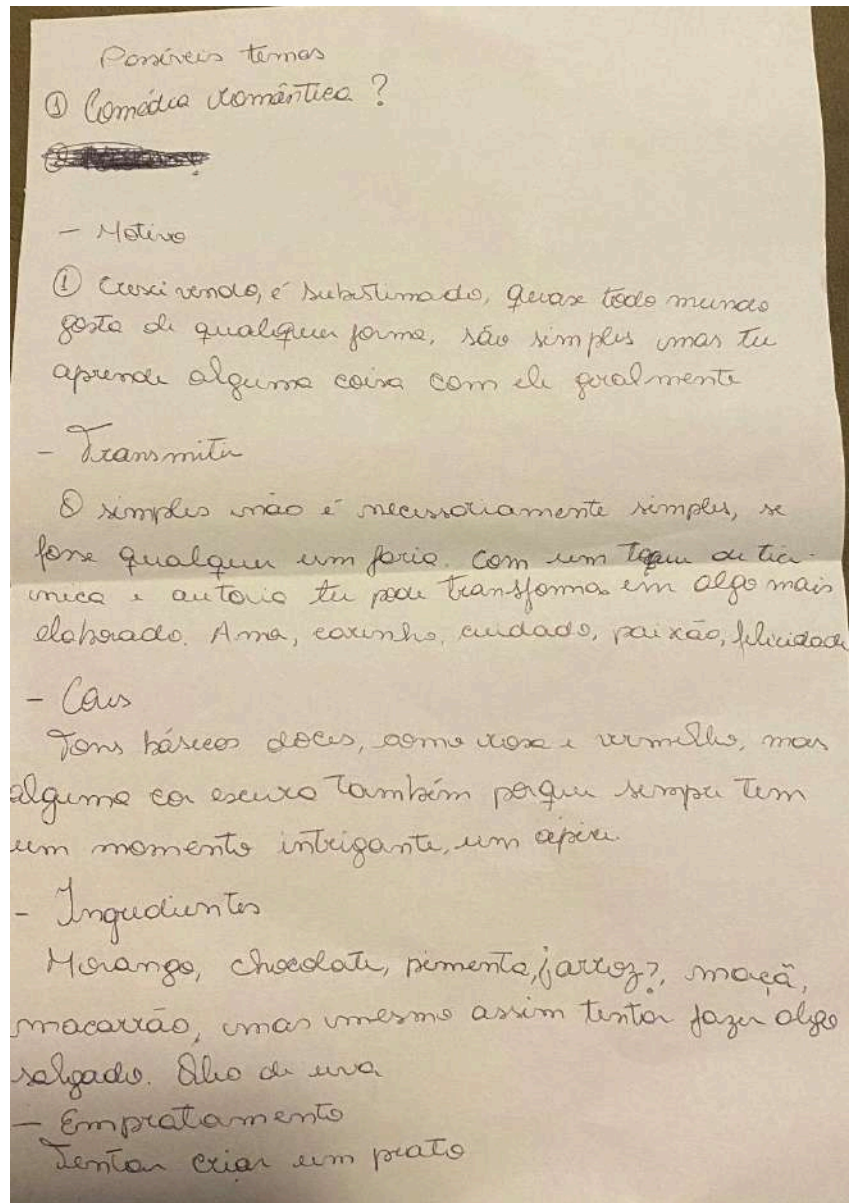 Possíveis temas
① Comédia romântica ?
- Motivo
① Cresci vendo, é subestimado, quase todo mundo
gosta de qualquer forma, são simples mas tu
aprende alguma coisa com ele geralmente
- Transmitir
O simples não é necessariamente simples, se
fosse qualquer um faria. Com um de téc-
nica e autoria tu pode transformar em algo mais
elaborado. Amor, carinho, cuidado, paixão, felicidade
- Cores
Tons básicos doces, como rosa e vermelho, mas
alguma cor escura também porque sempre tem
um momento intrigante, um ápice.
- Ingredientes
Morango, chocolate, pimenta, arroz?, maçã,
macarrão, mas mesmo assim tentar fazer algo
salgado. Óleo de uva
- Empratamento
Tentar criar um prato